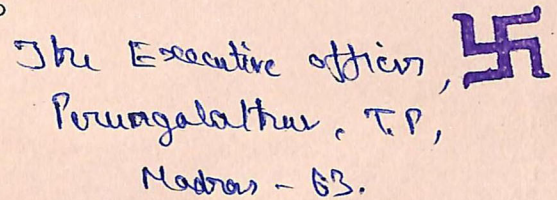 The Executive officer,
Perungalathur, T.P,
Madras - 63.